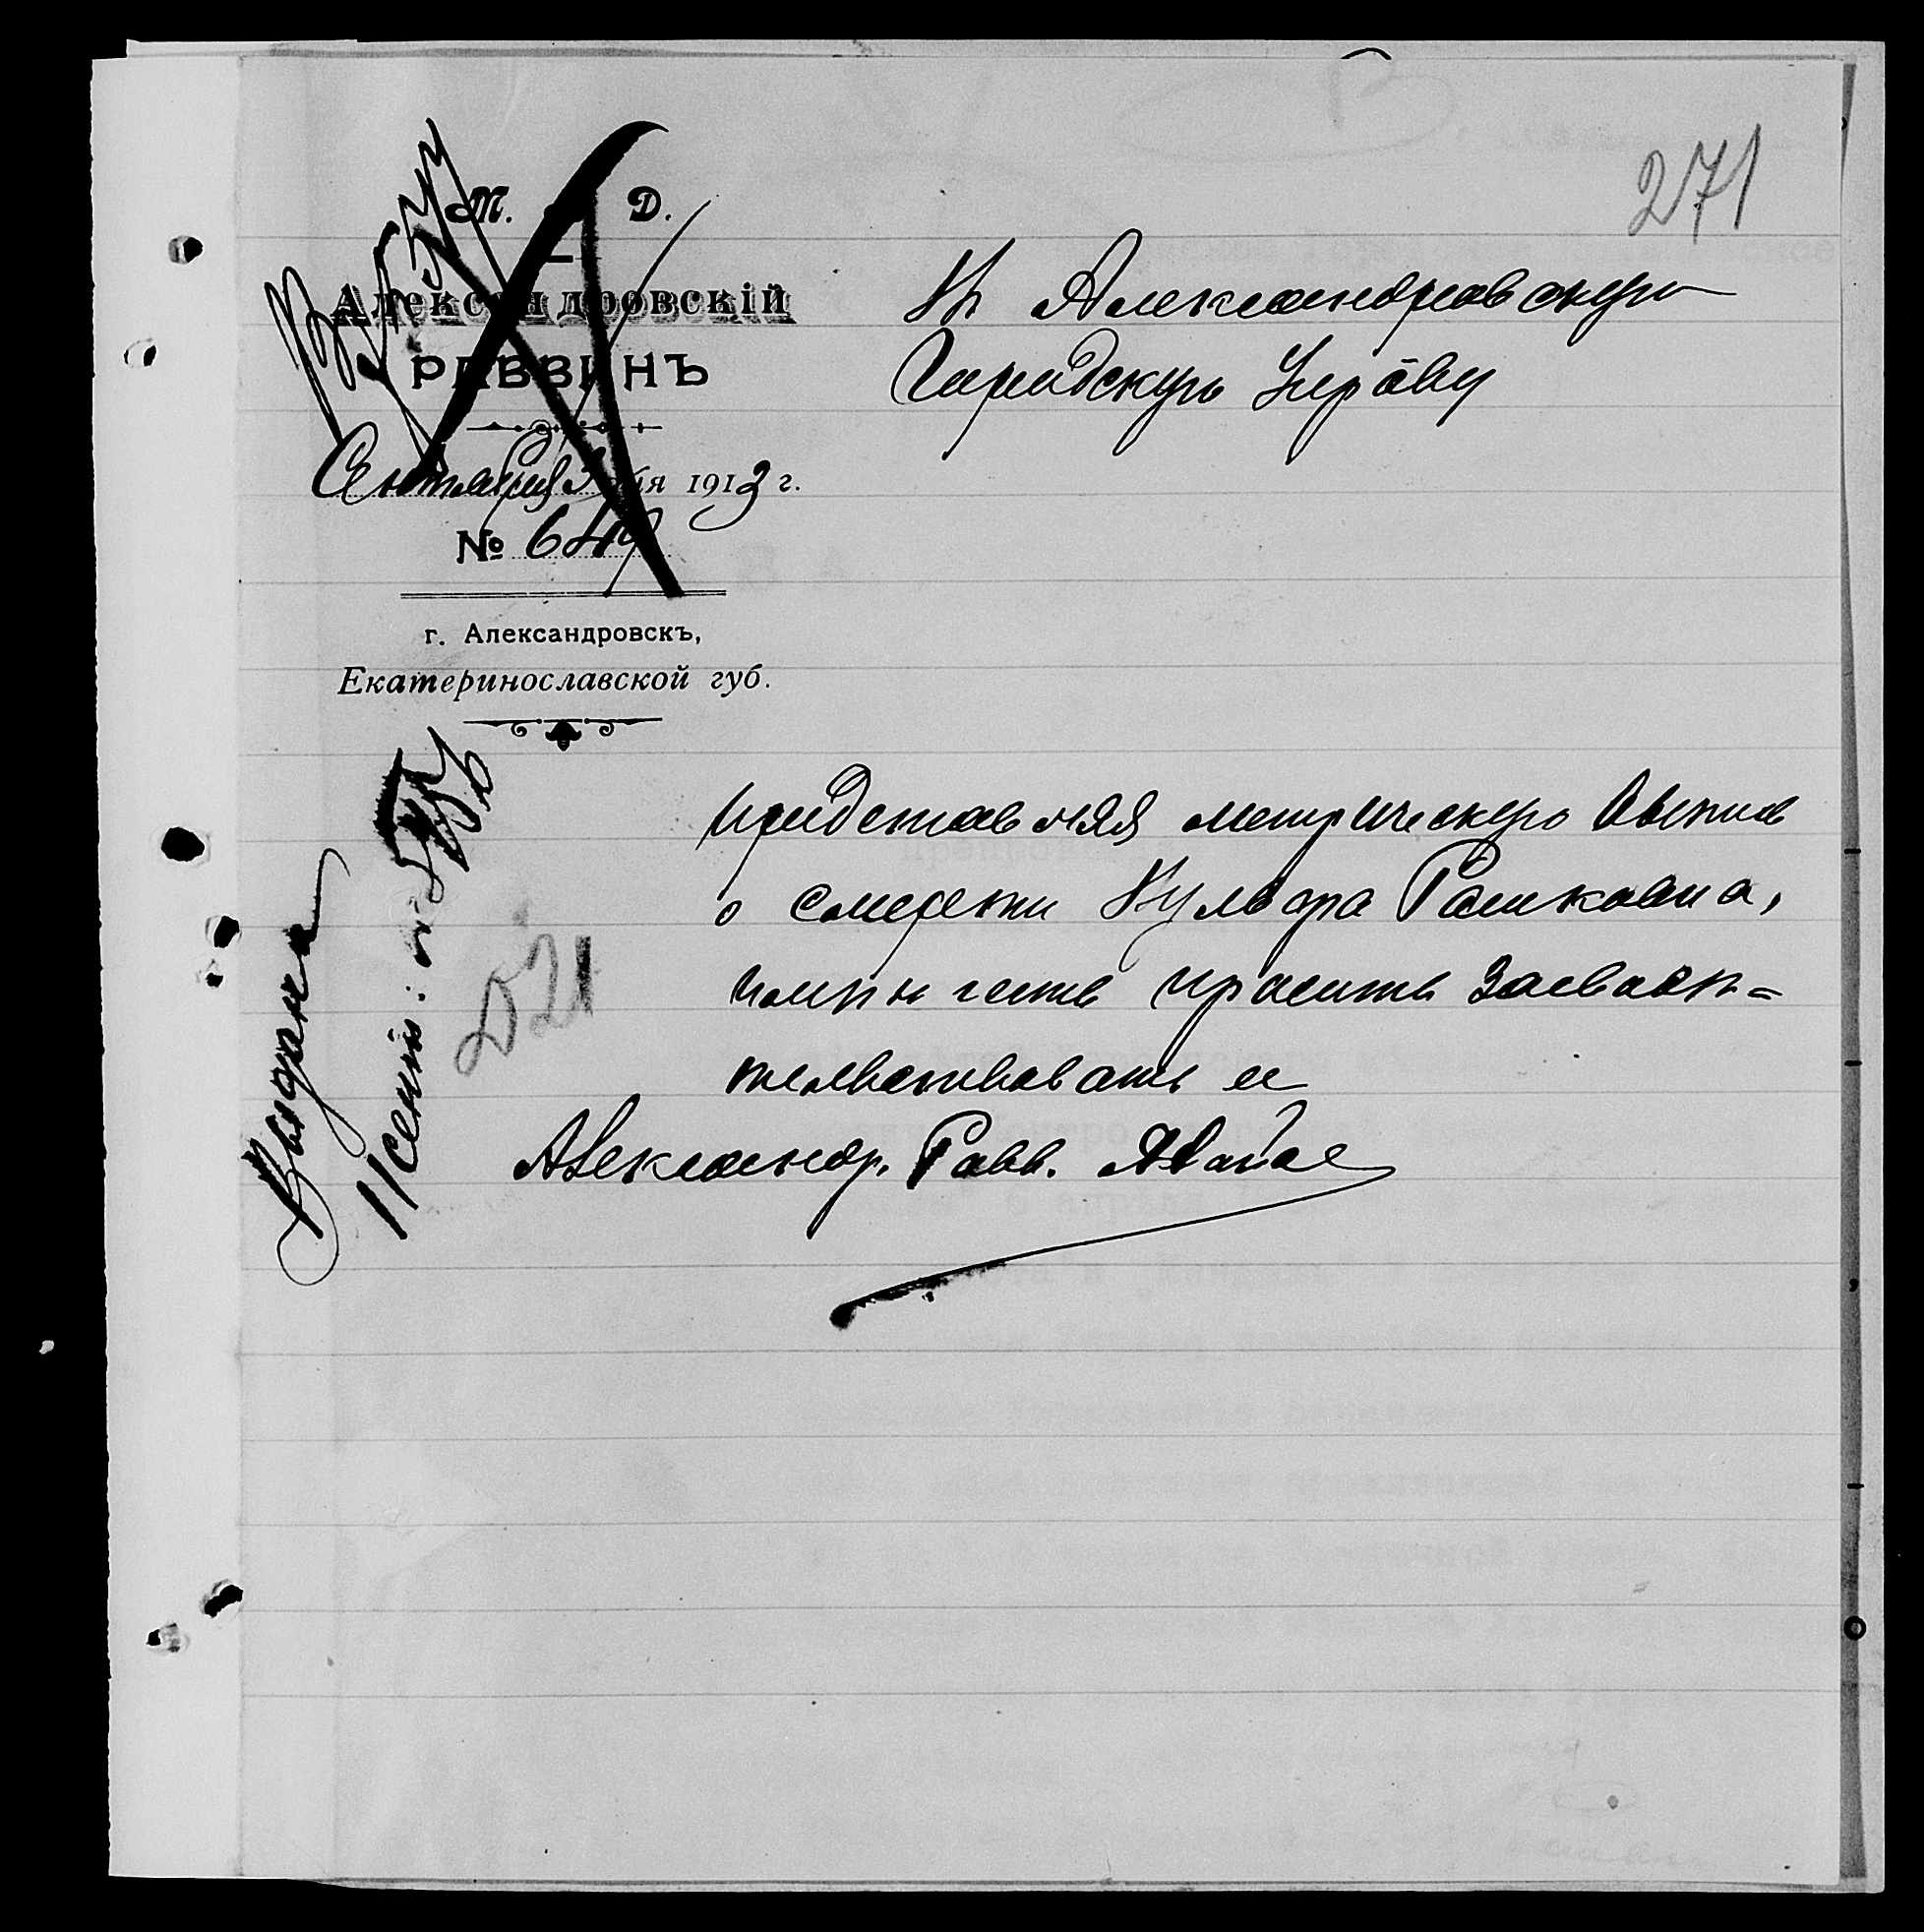 271
М. Д.
Александровскій
РАВВИНЪ
Сентября 3 дня 1913 г.
№ 649
г. Александровскъ,
Екатеринославской губ.
Въ Александровскую
Городскую Управу
Представляя метрическую выпись
о смерти Рашкована,
имѣю честь просить засвидѣ=
тельствовать ее
Александр. Равв.
Выдана
11 сент:
521